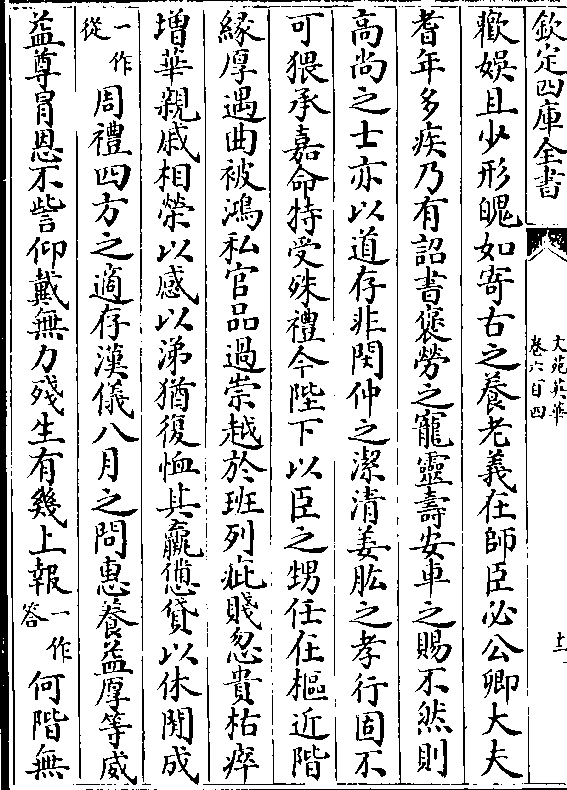 欽定四庫全書
文苑英華
卷六百四
十一
歡娯且少形魄如寄古之養老義在師臣必公卿大夫
耆年多疾乃有詔書褒勞之寵靈壽安車之賜不然則
高尚之士亦以道存非閔仲之潔清姜肱之孝行固不
可猥承嘉命特受殊禮今陛下以臣之甥任在樞近階
緣厚遇曲被鴻私官品過崇越於班列疵賤忽貴枯瘁
増華親戚相榮以感以涕猶復恤其羸憊貸以休閒成
一作從周禮四方之適存漢儀八月之問惠養益厚等威
益尊冐恩不訾仰戴無力殘生有幾上報一作答何階無